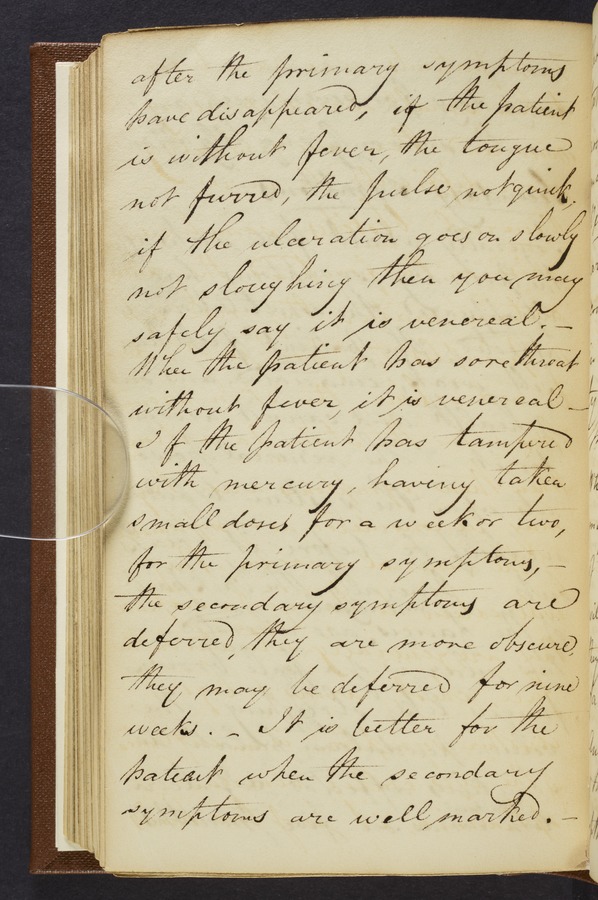 after the primary symptoms
have disappeared, if the patient
is without fever, the tongue
not furred, the pulse not quick,
if the ulceration goes on slowly
not sloughing then you may
safely say it is venereal. –
When the patient has sore throat
without fever, it is venereal –
If the patient has tampered
with mercury, having taken
small doses for a week or two,
for the primary symptoms, –
the secondary symptoms are
deferred, they are more obscure,
they may be deferred for nine
weeks. – It is better for the
patient when the secondary
symptoms are well marked. –